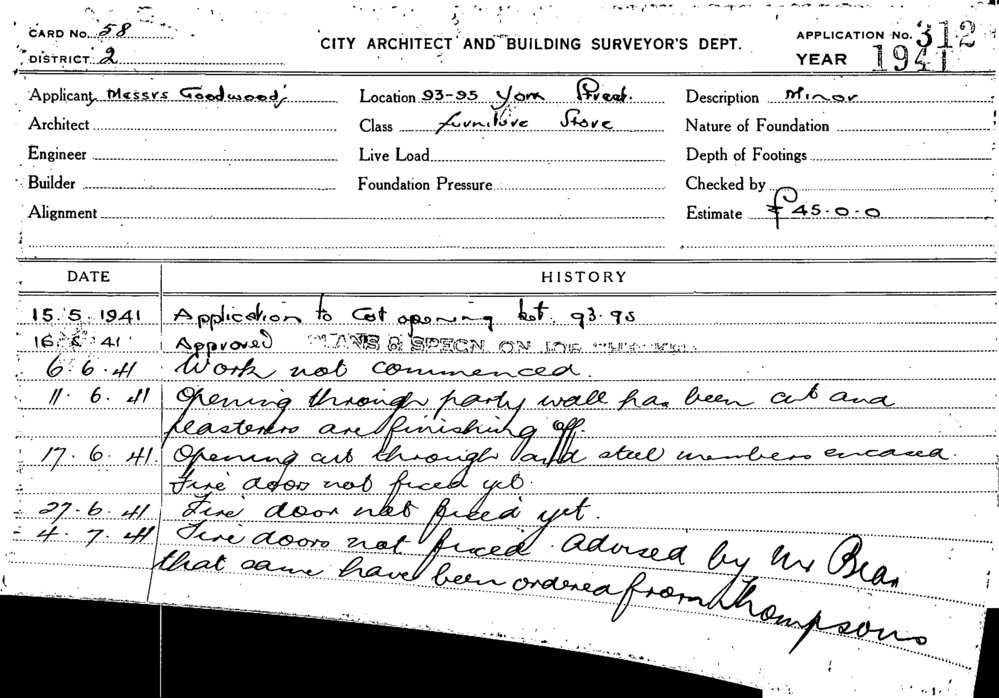 CARD No. 58
DISTRICT 2
CITY ARCHITECT AND BUILDING SURVEYOR'S DEPT.
APPLICATION No. 312
YEAR 1941
Applicant Messrs Goodwood
Location 93-95 York Street.
Description Minor
Architect
Class furniture Store
Nature of Foundation
Engineer
Live Load
Depth of Footings
Builder
Foundation Pressure
Checked by
Alignment
Estimate £45.0.0
DATE HISTORY
15.5.1941 Application to Cut opening bet. 93.95
16 41 Approved PLANS & SPECN. ON JOB
6.6.41 Work not commenced.
11.6.41 Opening through party wall has been cut and
plasterers are finishing off.
17.6.41 Opening cut through and steel members encased.
Fire doors not fixed yet.
27.6.41 Fire door not fixed yet.
4.7.41 Fire doors not fixed. advised by Mr Bean
that same have been ordered from Thompsons